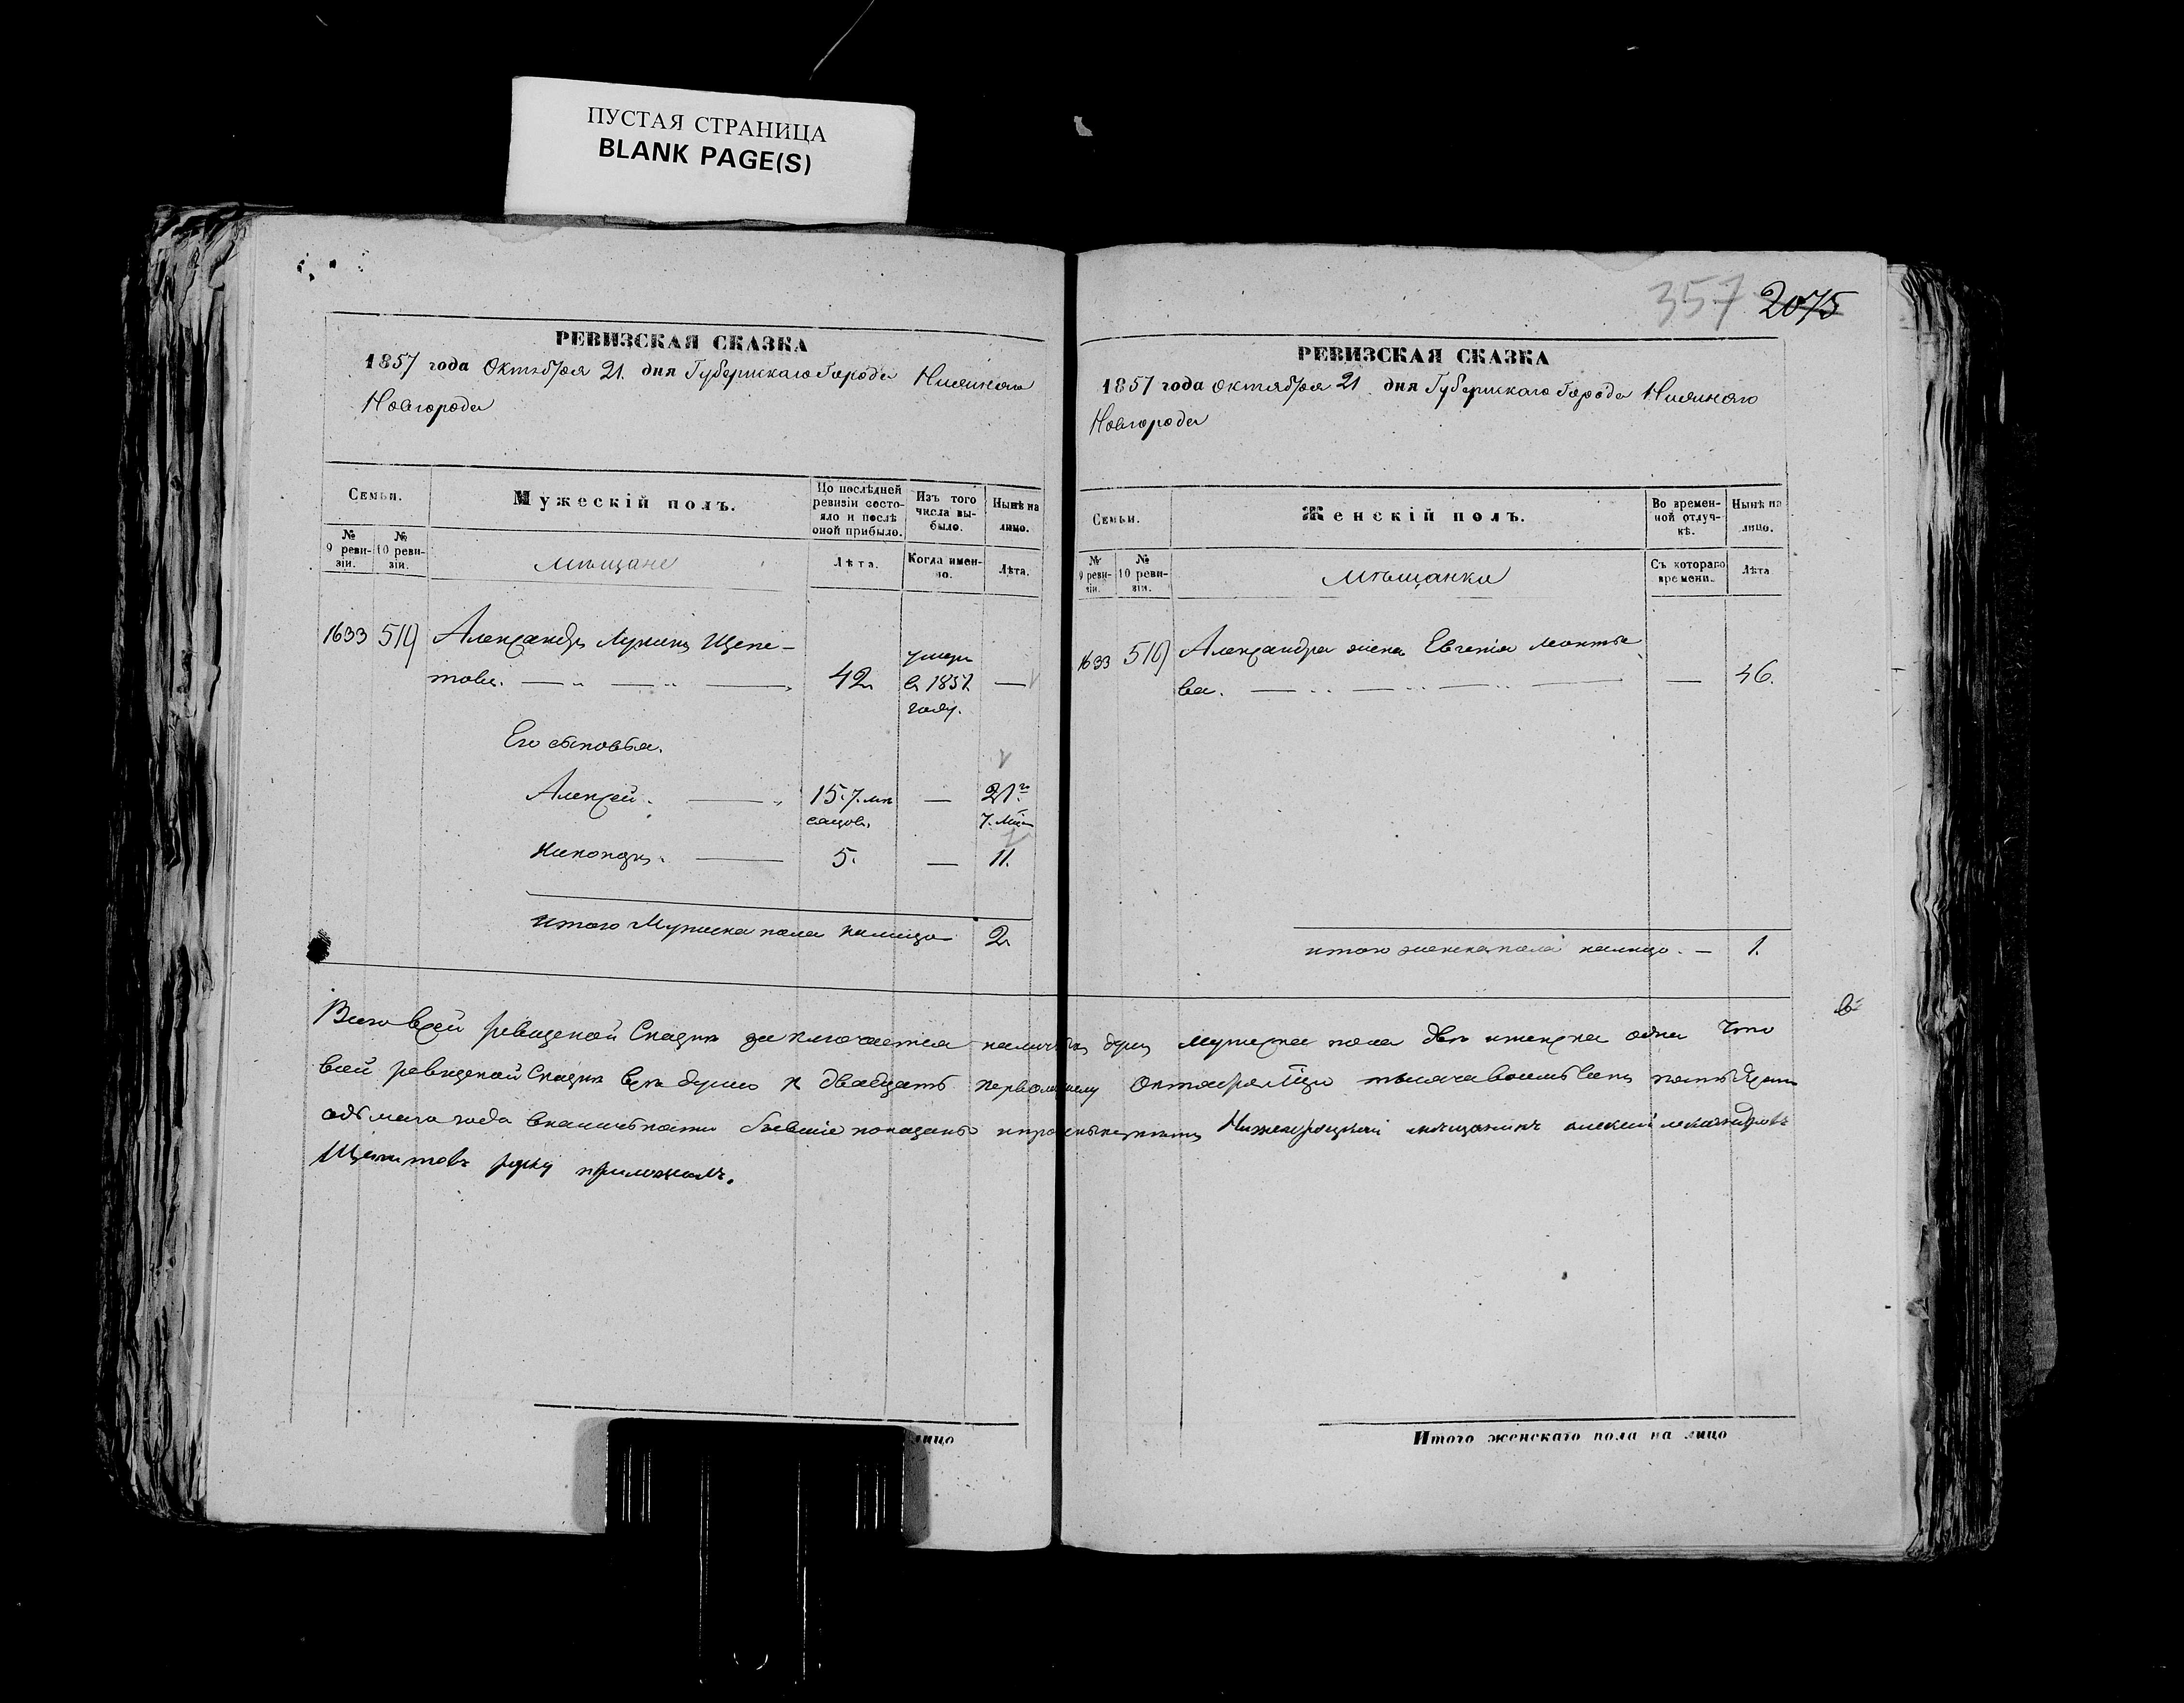 ПУСТАЯ СТРАНИЦА
BLANK PAGE(S)
РЕВИЗСКАЯ СКАЗКА
1857 года Октября 21. дня Губернскаго Города Нижняго
Новгорода
Семьи.
№ 9 реви-зіи.
№ 10 реви-зіи.
Мужескій полъ.
мѣщане
По послѣдней ревизіи состо-яло и послѣ оной прибыло.
Лѣта.
Изъ того числа вы-было.
Когда имен-но.
Нынѣ на лицо.
Лѣта.
1633 519 Александръ Лукинъ Щепе-
товъ. 42. умеръ въ 1857. году. —
Его сыновья.
Алексѣй. 15. 7. мѣ сяцовъ. — 21. 7. мѣ
5. — 11.
итого Мужеска пола налицо 2.
357 2075
РЕВИЗСКАЯ СКАЗКА
1857 года Октября 21 дня Губернскаго Города Нижняго
Новгорода
Семьи.
№ 9 реви-зіи.
№ 10 реви-зіи.
Женскій полъ.
мѣщанки
Во времен-ной отлуч-кѣ.
Съ котораго времени.
Нынѣ на лицо.
Лѣта
1633 519 Александра жена Евгенія Леонтье
ва. — 46.
итого женска пола налицо. — 1.
Всего въ сей ревизской Сказкѣ заключается наличныхъ душъ мужеска пола двѣ и женска одна Что
въ сей ревизской Сказкѣ всѣ души к двадцать первому Октября тысяча восемь сотъ пятьдесятъ
седьмаго года в наличности бывшіе показаны Нижегородской мѣщанинъ алексей александровъ
Щепетовъ руку приложилъ.
лицо
Итого женскаго пола на лицо